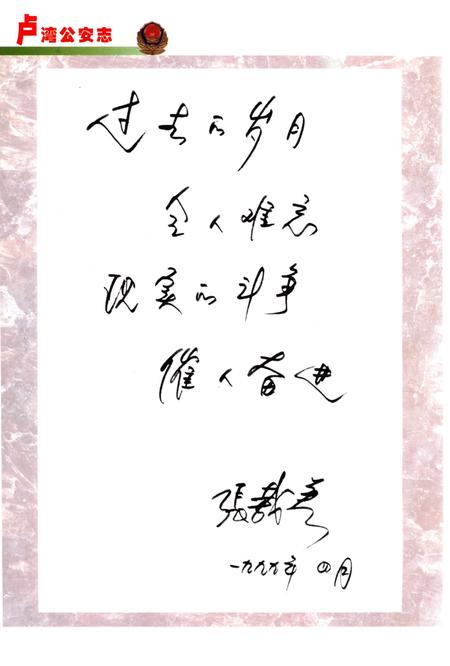 卢湾公安志
过去的岁月
令人难忘
现实的斗争
催人奋进
張
一九九九年四月